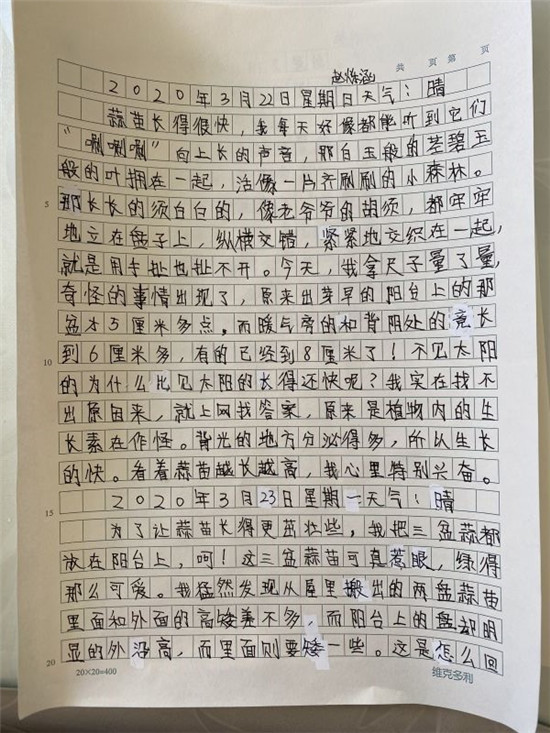 赵烁涵
共 页 第 页
2020年3月22日星期日天气:晴
蒜苗长得很快,我每天好像都能听到它们
“唰唰唰”向上长的声音,那白玉般的茎碧玉
般的叶拥在一起,活像一片齐刷刷的小森林。
5 那长长的须白白的,像老爷爷的胡须,都牢牢
地立在盘子上,纵横交错,紧紧地交织在一起,
就是用手扯也扯不开。今天,我拿尺子量了量,
奇怪的事情出现了,原来出芽早的阳台上的那
盆才5厘米多点。而暖气旁的和背阴处的竟长
10 到6厘米多,有的已经到8厘米了!不见太阳
的为什么比见太阳的长得还快呢?我实在找不
出原由来,就上网找答案,原来是植物内的生
长素在作怪。背光的地方分泌得多,所以生长
的快。看着蒜苗越长越高,我心里特别兴奋。
15 2020年3月23日星期一天气:晴
为了让蒜苗长得更茁壮些,我把三盆蒜都
放在阳台上,呵!这三盆蒜苗可真惹眼,绿得
那么可爱。我猛然发现从屋里搬出的两盘蒜苗
里面和外面的高矮差不多,而阳台上的盘却明
20 显的外沿高,而里面则要矮一些。这是怎么回
20×20=400 维克多利